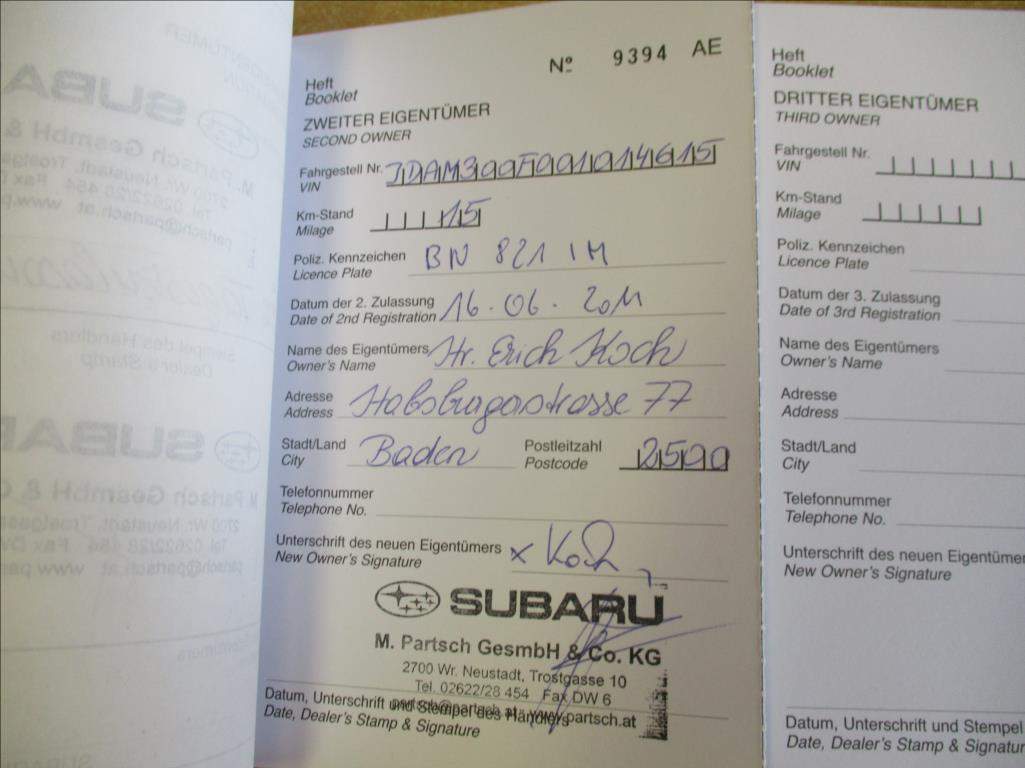 Nº 9394 AE
Heft
Booklet
ZWEITER EIGENTÜMER
SECOND OWNER
Fahrgestell Nr. JDAM300F001014615
VIN
Km-Stand 15
Milage
Poliz. Kennzeichen BN 821 IM
Licence Plate
Datum der 2. Zulassung 16.06.2011
Date of 2nd Registration
Name des Eigentümers Hr. Erich Koch
Owner's Name
Adresse Habsburgerstrasse 77
Address
Stadt/Land Baden Postleitzahl 2500
City Postcode
Telefonnummer
Telephone No.
Unterschrift des neuen Eigentümers x Koch
New Owner's Signature
SUBARU
M. Partsch GesmbH & Co. KG
2700 Wr. Neustadt, Trostgasse 10
Tel. 02622/28 454 Fax DW 6
partsch@partsch.at www.partsch.at
Datum, Unterschrift und Stempel des Händlers
Date, Dealer's Stamp & Signature
Heft
Booklet
DRITTER EIGENTÜMER
THIRD OWNER
Fahrgestell Nr.
VIN
Km-Stand
Milage
Poliz. Kennzeichen
Licence Plate
Datum der 3. Zulassung
Date of 3rd Registration
Name des Eigentümers
Owner's Name
Adresse
Address
Stadt/Land
City
Telefonnummer
Telephone No.
Unterschrift des neuen
New Owner's Signature
Datum, Unterschrift und Stempel
Date, Dealer's Stamp &